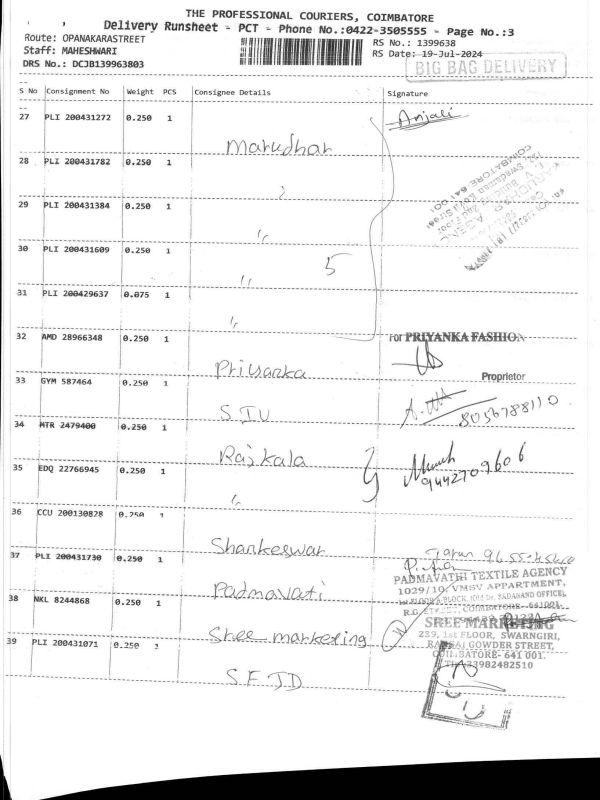 THE PROFESSIONAL COURIERS, COIMBATORE
Delivery Runsheet - PCT - Phone No.:0422-3505555 - Page No.:3
Route: OPANAKARASTREET
RS No.: 1399638
Staff: MAHESHWARI
RS Date: 19-Jul-2024
DRS No.: DCJB139963803
BIG BAG DELIVERY
S No Consignment No Weight PCS Consignee Details Signature
27 PLI 200431272 0.250 1 Marudhar Anjali
28 PLI 200431782 0.250 1 "
29 PLI 200431384 0.250 1 "
30 PLI 200431609 0.250 1 " 5
31 PLI 200429637 0.075 1 "
32 AMD 28966348 0.250 1 Priyanka For PRIYANKA FASHION
Proprietor
33 GYM 587464 0.250 1 S I U 8056788110
34 MTR 2479400 0.250 1 Rajkala
35 EDQ 22766945 0.250 1 " 9442709606
36 CCU 200130828 0.250 1 Shankeswar
37 PLI 200431730 0.250 1 Padmavati
PADMAVATHI TEXTILE AGENCY
1029/10, VMSV APPARTMENT,
COIMBATORE - 641001.
38 NKL 8244868 0.250 1 Sree marketing
SREE MARKETING
239, 1st FLOOR, SWARNGIRI,
GOWDER STREET,
COIMBATORE- 641 001.
39 PLI 200431071 0.250 1 S F J D